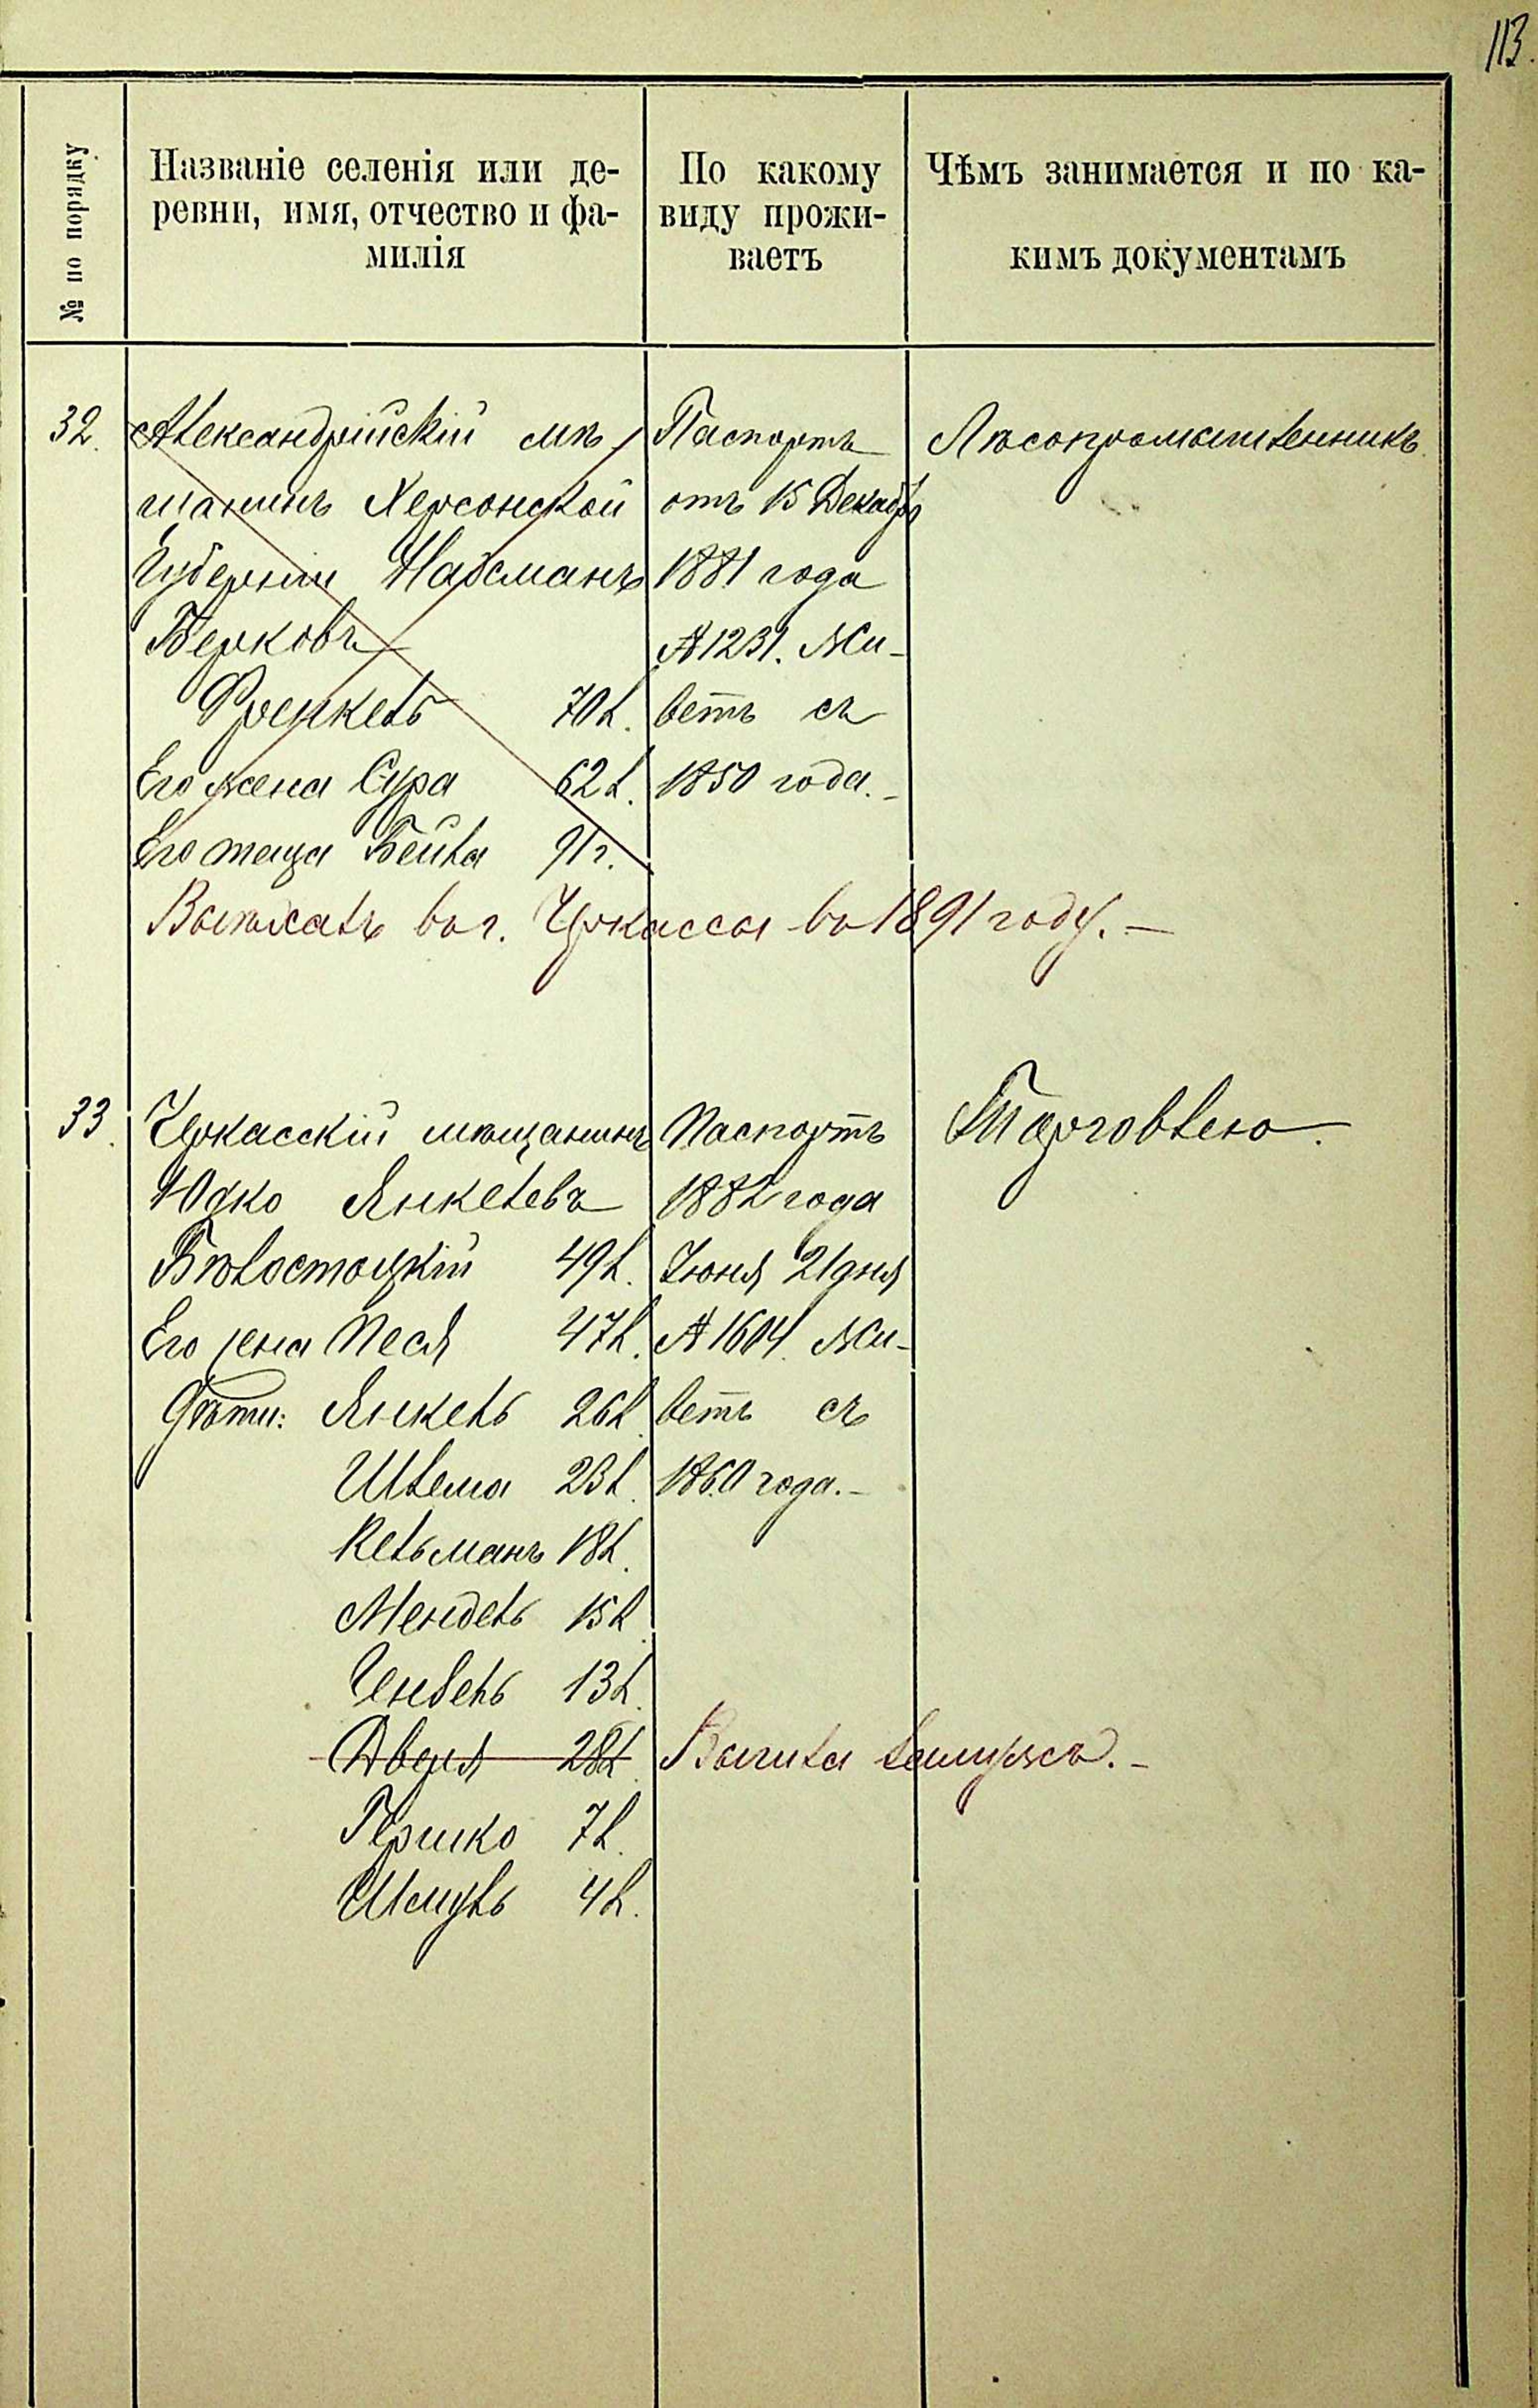 113.
№ по порядку
Названіе селенія или де-
ревни, имя, отчество и фа-
милія
По какому
виду прожи-
ваетъ
Чѣмъ занимается и по ка-
кимъ документамъ
32.
Александрійскій мѣ-
щанинъ Херсонской
Губерніи Нахманъ
Берковъ
Френкель 70 л.
Его жена Сура 62 л.
Его теща Бейла 91 г.
Паспортъ
отъ 15 Декабр
1881 года
№ 1231. Жи-
ветъ съ
1850 года.-
Лѣсопромышленникъ.
Выѣхалъ въ г. Черкассы въ 1891 году.-
33.
Черкасскій мѣщанинъ
Юдко Янкелевъ
Бѣлостоцкій 49 л.
Его жена Песя 47 л.
Дѣти: Янкель 26 л.
Шлема 23 л.
Кельманъ 18 л.
Мендель 15 л.
13 л.
Двейя 28 л.
Гершко 7 л.
Шмуль 4 л.
Паспортъ
1882 года
Іюня 21 дня
№ 1604. Жи-
ветъ съ
1860 года.-
Торговлею.
Вышла замужъ.-